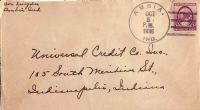 AMBIA,
OCT
5
P.M.
IND.
Universal Credit Co. Inc.,
105 South Meridian St.,
Indianapolis, Indiana